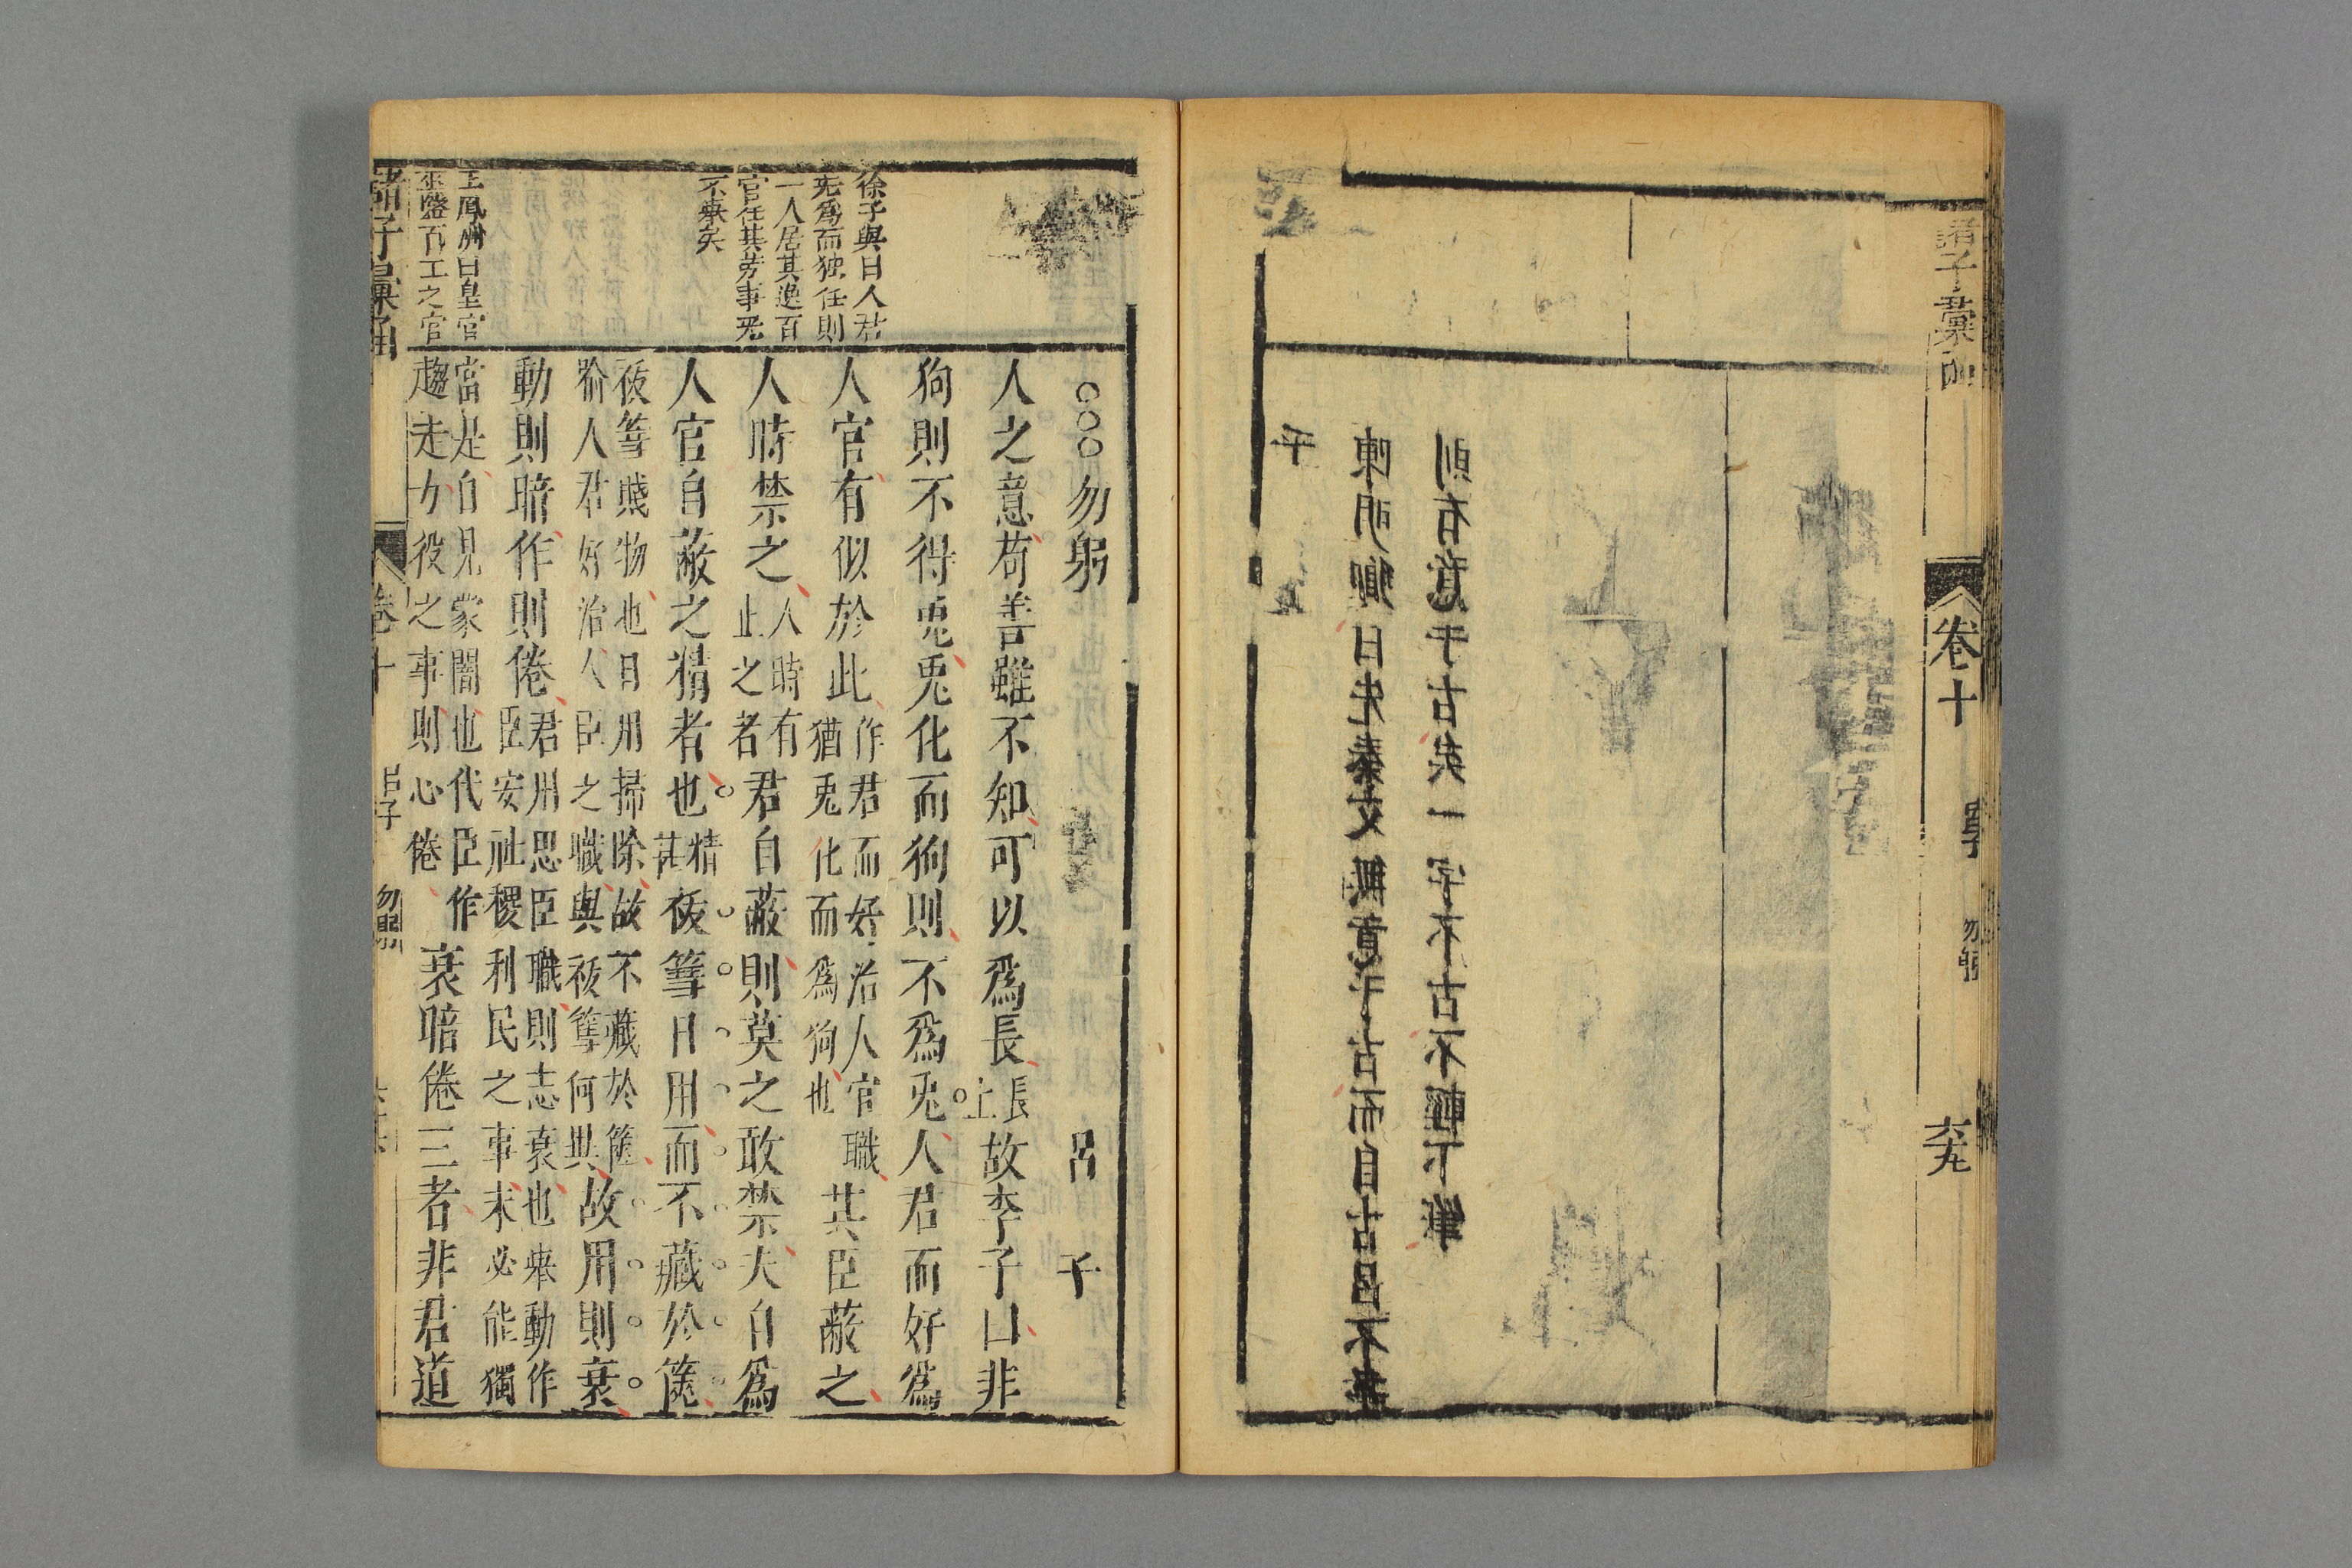 諸子彙函
卷十
勿躬
六九
則有意于古矣一字不古不輕下筆
陳明卿曰先秦文無意于古而自古呂不韋
乎
○○○勿躬
呂子
人之意苟善雖不知可以爲長長上故李子曰非
狗則不得兎兎化而狗則不爲兎人君而好爲
人官有似於此作君而好治人官職猶兎化而爲狗也其臣蔽之
人時禁之人時有止之者君自蔽則莫之敢禁夫自爲
人官自蔽之精者也精甚祓篲日用而不藏於篋
祓篲賤物也日用掃除故不藏於篋喻人君好治人臣之職與祓篲何異故用則衰
動則暗作則倦君用思臣職則志衰也舉動作臣安社稷利民之事未必能獨
當是自見蒙闇也代臣作趨走力役之事則心倦衰暗倦三者非君道
徐子與曰人君
旡爲而独任則
一人居其逸百
官任其劳事旡
不举矣
王鳳洲曰皇官
巫醫百工之官
諸子彙函
卷十
呂子
勿躬